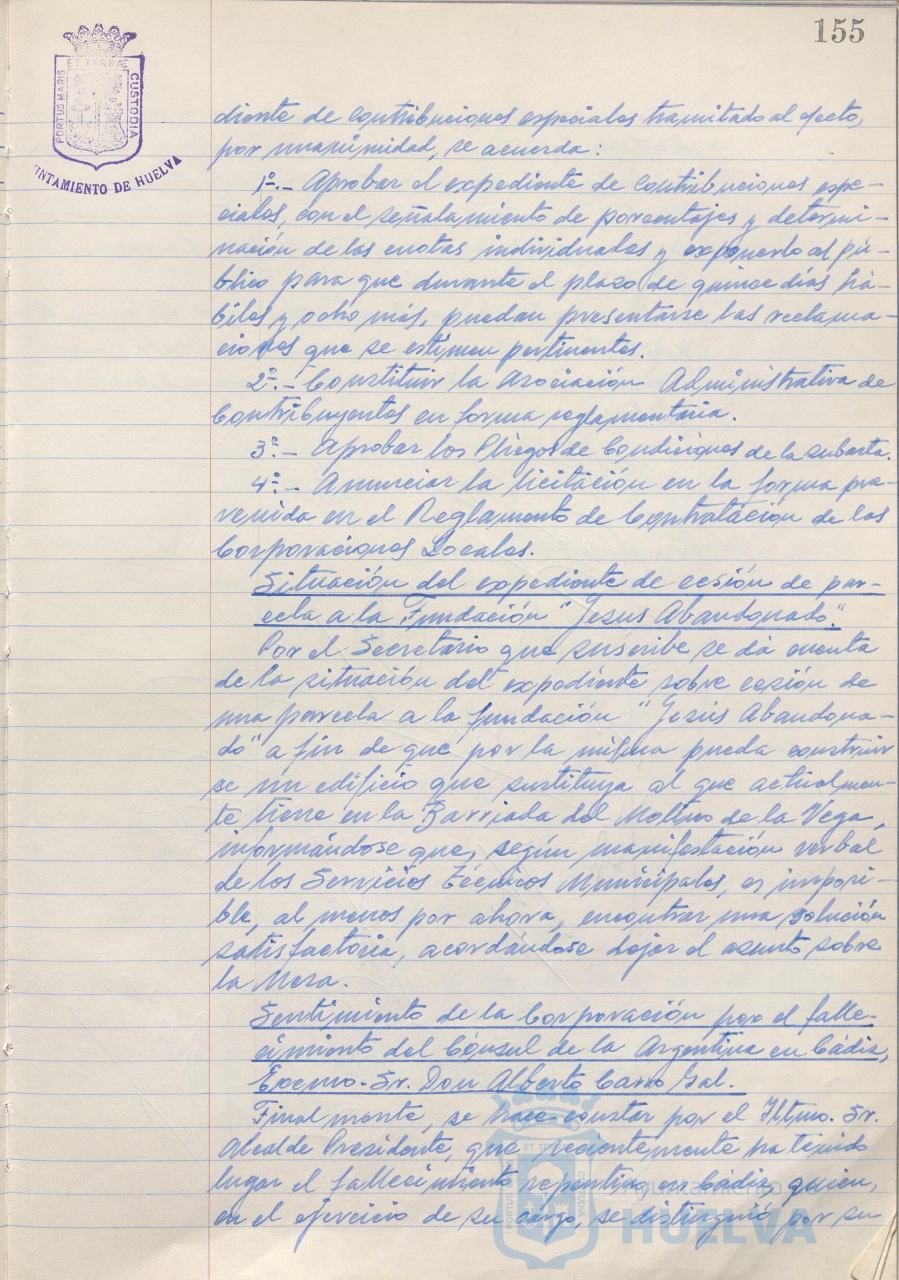 155
ET TERRÆ
PORTUS MARIS
CUSTODIA
UNTAMIENTO DE HUELVA
diente de contribuciones especiales tramitado al efecto,
por unanimidad, se acuerda:
1º.- Aprobar el expediente de contribuciones espe-
ciales, con el señalamiento de porcentajes y determi-
nación de las cuotas individuales y exponerlo al pú-
blico para que durante el plazo de quince días há-
biles y ocho más, puedan presentarse las reclama-
ciones que se estimen pertinentes.
2º.- Constituir la Asociación Administrativa de
Contribuyentes en forma reglamentaria.
3º.- Aprobar los Pliegos de Condiciones de la subasta.
4º.- Anunciar la licitación en la forma pre-
venida en el Reglamento de Contratación de las
Corporaciones Locales.
Situación del expediente de cesión de par-
cela a la Fundación "Jesus Abandonado".
Por el Secretario que suscribe se da cuenta
de la situación del expediente sobre cesión de
una parcela a la fundación "Jesús Abandona-
do" a fin de que por la misma pueda construir
se un edificio que sustituya al que actualmen-
te tiene en la Barriada del Molino de la Vega,
informándose que, según manifestación verbal
de los Servicios Técnicos Municipales, es imposi-
ble, al menos por ahora, encontrar una solución
satisfactoria, acordándose dejar el asunto sobre
la Mesa.
Sentimiento de la Corporación por el falle-
cimiento del Cónsul de la Argentina en Cádiz,
Excmo. Sr. Don Alberto Gal.
Finalmente, se hace constar por el Iltmo. Sr.
Alcalde Presidente, que recientemente ha tenido
lugar el fallecimiento repentino en Cádiz, quien,
en el ejercicio de su cargo, se distinguió por su
Ayuntamiento
HUELVA